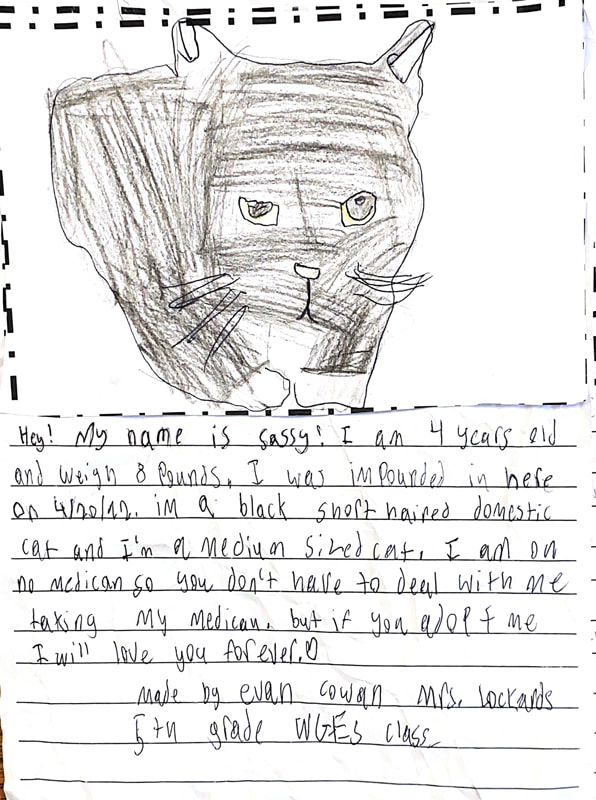 Hey! My name is sassy! I am 4 years old
and weigh 8 pounds. I was impounded in here
on 4/20/12. im a black short haired domestic
cat and I'm a medium sized cat. I am on
no medican so you don't have to deal with me
taking my medican. but if you adopt me
I will love you forever.♡
made by evan cowan Mrs. Lockards
5th grade WGES class